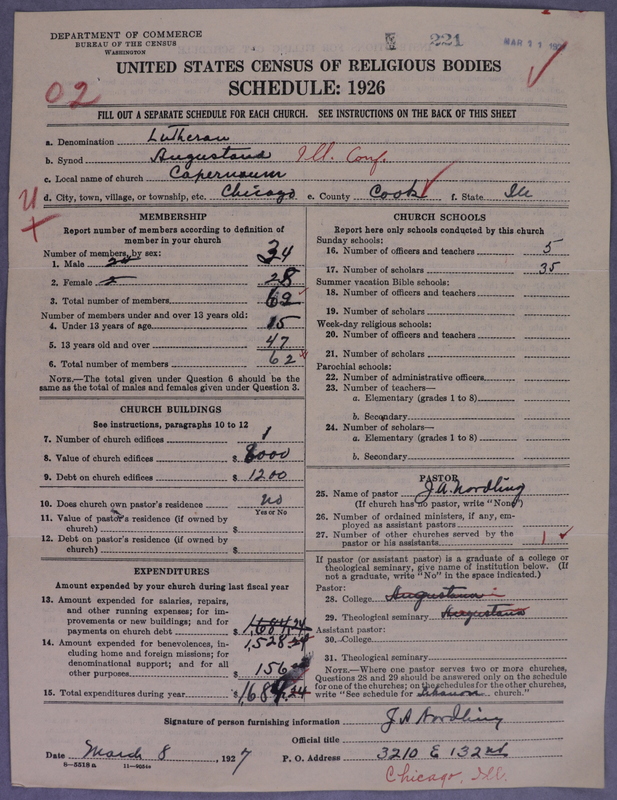 DEPARTMENT OF COMMERCE
BUREAU OF THE CENSUS
WASHINGTON
221 MAR 11 192
UNITED STATES CENSUS OF RELIGIOUS BODIES
SCHEDULE: 1926
02
FILL OUT A SEPARATE SCHEDULE FOR EACH CHURCH. SEE INSTRUCTIONS ON THE BACK OF THIS SHEET
a. Denomination Lutheran
b. Synod Augustana Ill. Conf.
c. Local name of church Capernaum
d. City, town, village, or township, etc. Chicago e. County Cook f. State Ill
MEMBERSHIP
Report number of members according to definition of
member in your church
Number of members, by sex:
1. Male 34
2. Female 28
3. Total number of members 62
Number of members under and over 13 years old:
4. Under 13 years of age 15
5. 13 years old and over 47
6. Total number of members 62
NOTE.—The total given under Question 6 should be the
same as the total of males and females given under Question 3.
CHURCH BUILDINGS
See instructions, paragraphs 10 to 12
7. Number of church edifices 1
8. Value of church edifices $ 8000
9. Debt on church edifices $ 1200
10. Does church own pastor's residence no
Yes or No
11. Value of pastor's residence (if owned by
church) $
12. Debt on pastor's residence (if owned by
church) $
EXPENDITURES
Amount expended by your church during last fiscal year
13. Amount expended for salaries, repairs,
and other running expenses; for im-
provements or new buildings; and for
payments on church debt $ 1,684.24
1,528.24
14. Amount expended for benevolences, in-
cluding home and foreign missions; for
denominational support; and for all
other purposes $ 156
15. Total expenditures during year $ 1684.24
CHURCH SCHOOLS
Report here only schools conducted by this church
Sunday schools:
16. Number of officers and teachers 5
17. Number of scholars 35
Summer vacation Bible schools:
18. Number of officers and teachers
19. Number of scholars
Week-day religious schools:
20. Number of officers and teachers
21. Number of scholars
Parochial schools:
22. Number of administrative officers
23. Number of teachers—
a. Elementary (grades 1 to 8)
b. Secondary
24. Number of scholars—
a. Elementary (grades 1 to 8)
b. Secondary
PASTOR
25. Name of pastor J.A. Nordling
(If church has no pastor, write "None")
26. Number of ordained ministers, if any, em-
ployed as assistant pastors
27. Number of other churches served by the
pastor or his assistants 1
If pastor (or assistant pastor) is a graduate of a college or
theological seminary, give name of institution below. (If
not a graduate, write "No" in the space indicated.)
Pastor:
28. College Augustana
29. Theological seminary Augustana
Assistant pastor:
30. College
31. Theological seminary
NOTE.—Where one pastor serves two or more churches,
Questions 28 and 29 should be answered only on the schedule
for one of the churches; on the schedules for the other churches,
write "See schedule for Lebanon church."
Signature of person furnishing information J A Nordling
Official title
Date March 8 1927 P. O. Address 3210 E 132nd
8—5518a
Chicago, Ill.